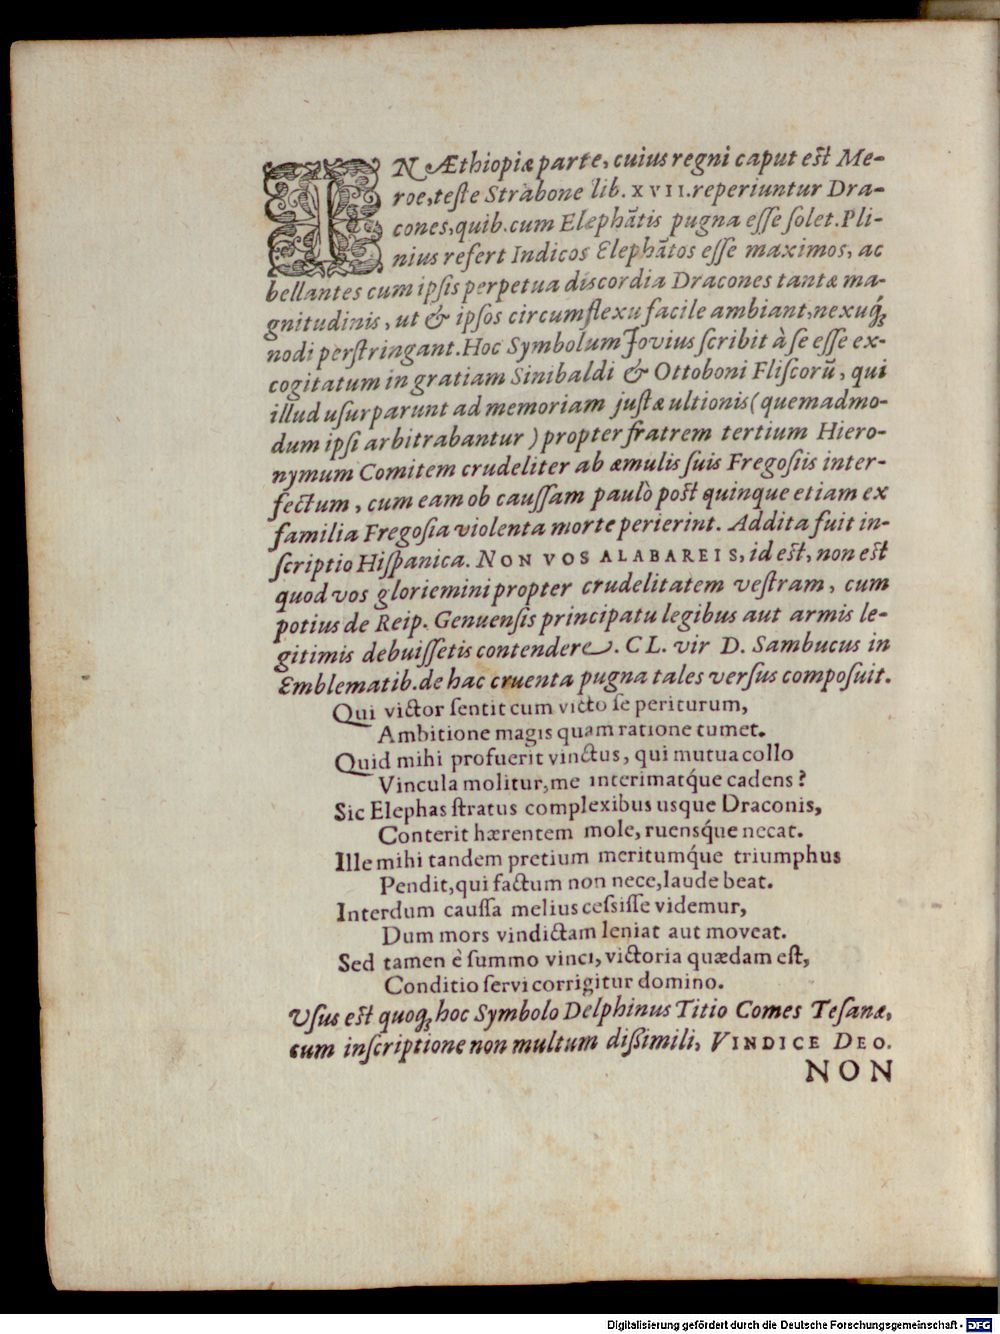 IN Æthiopiæ parte, cuius regni caput est Me-
roe, teste Strabone lib. XVII. reperiuntur Dra-
cones, quib. cum Elephātis pugna esse solet. Pli-
nius refert Indicos Elephātos esse maximos, ac
bellantes cum ipsis perpetua discordia Dracones tantæ ma-
gnitudinis, ut & ipsos circumflexu facile ambiant, nexuq́;
nodi perstringant. Hoc Symbolum Jovius scribit à se esse ex-
cogitatum in gratiam Sinibaldi & Ottoboni Fliscorū, qui
illud usurparunt ad memoriam justæ ultionis (quemadmo-
dum ipsi arbitrabantur) propter fratrem tertium Hiero-
nymum Comitem crudeliter ab æmulis suis Fregosiis inter-
fectum, cum eam ob caussam paulò post quinque etiam ex
familia Fregosia violenta morte perierint. Addita fuit in-
scriptio Hispanica. NON VOS ALABAREIS, id est, non est
quod vos gloriemini propter crudelitatem vestram, cum
potius de Reip. Genuensis principatu legibus aut armis le-
gitimis debuissetis contendere. CL. vir D. Sambucus in
Emblematib. de hac cruenta pugna tales versus composuit.
Qui victor sentit cum victo se periturum,
Ambitione magis quam ratione tumet.
Quid mihi profuerit vinctus, qui mutua collo
Vincula molitur, me interimatq́ue cadens?
Sic Elephas stratus complexibus usque Draconis,
Conterit hærentem mole, ruensq́ue necat.
Ille mihi tandem pretium meritumq́ue triumphus
Pendit, qui factum non nece, laude beat.
Interdum caussa melius cessisse videmur,
Dum mors vindictam leniat aut moveat.
Sed tamen è summo vinci, victoria quædam est,
Conditio servi corrigitur domino.
Usus est quoq; hoc Symbolo Delphinus Titio Comes Tesanæ,
cum inscriptione non multum dissimili, VINDICE DEO.
NON
Digitalisierung gefördert durch die Deutsche Forschungsgemeinschaft - DFG